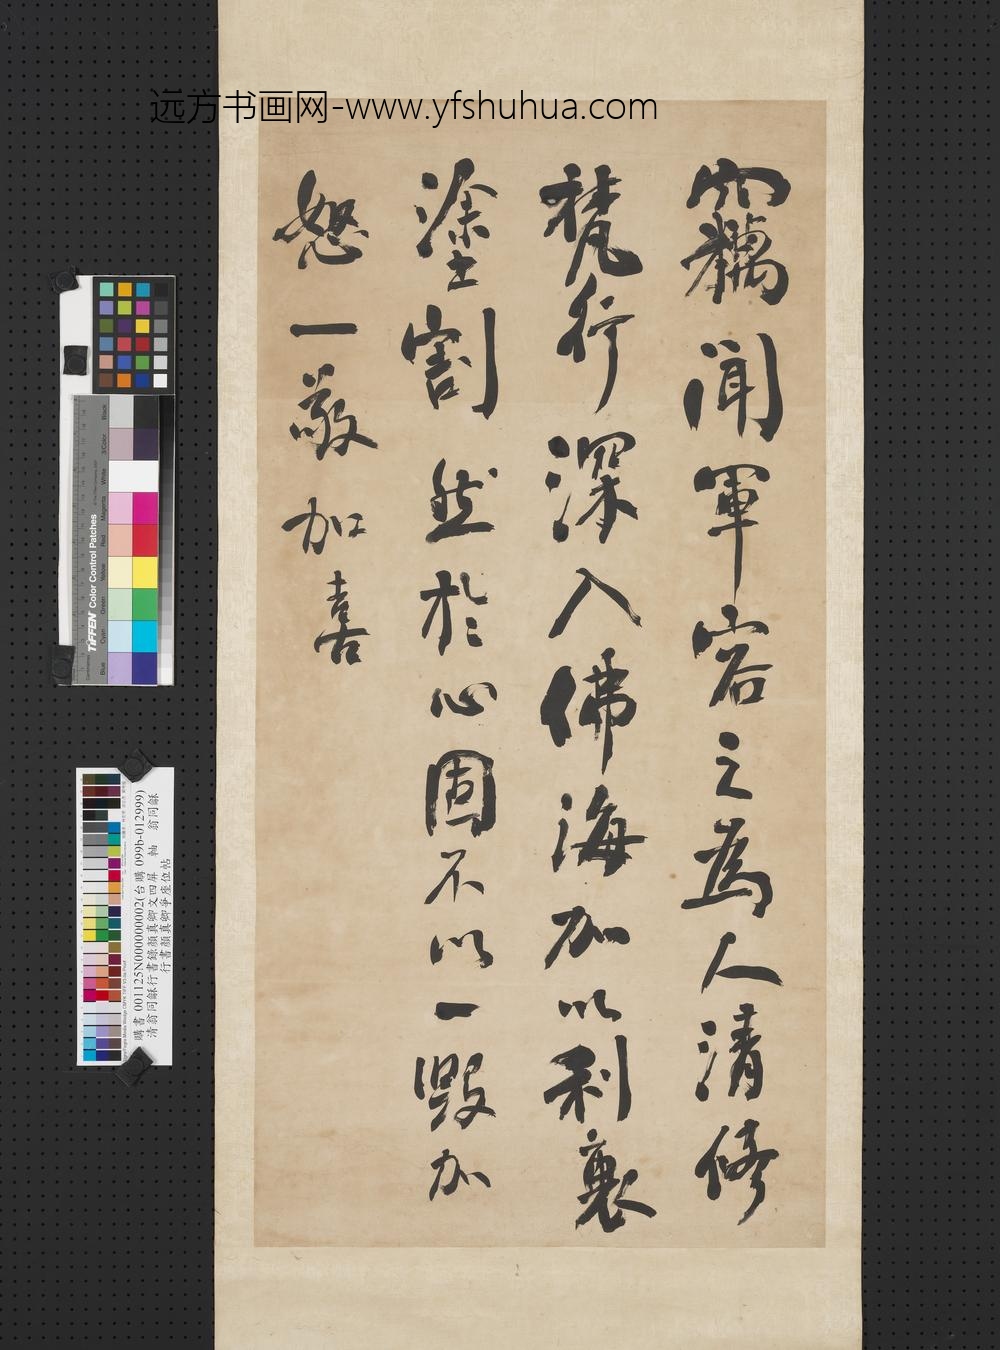 远方书画网-www.yfshuhua.com
竊聞軍容之為人清修
梵行深入佛海加以利衰
塗割然於心固不以一毀加
怒一敬加喜
TIFFEN Color Control Patches
Blue Cyan Green Yellow Red Magenta White 3/Color Black
購書 001125N000000002(台購 099b-012999)
清翁同龢行書錄顏真卿文四屏 軸 翁同龢
行書顏真卿爭座位帖